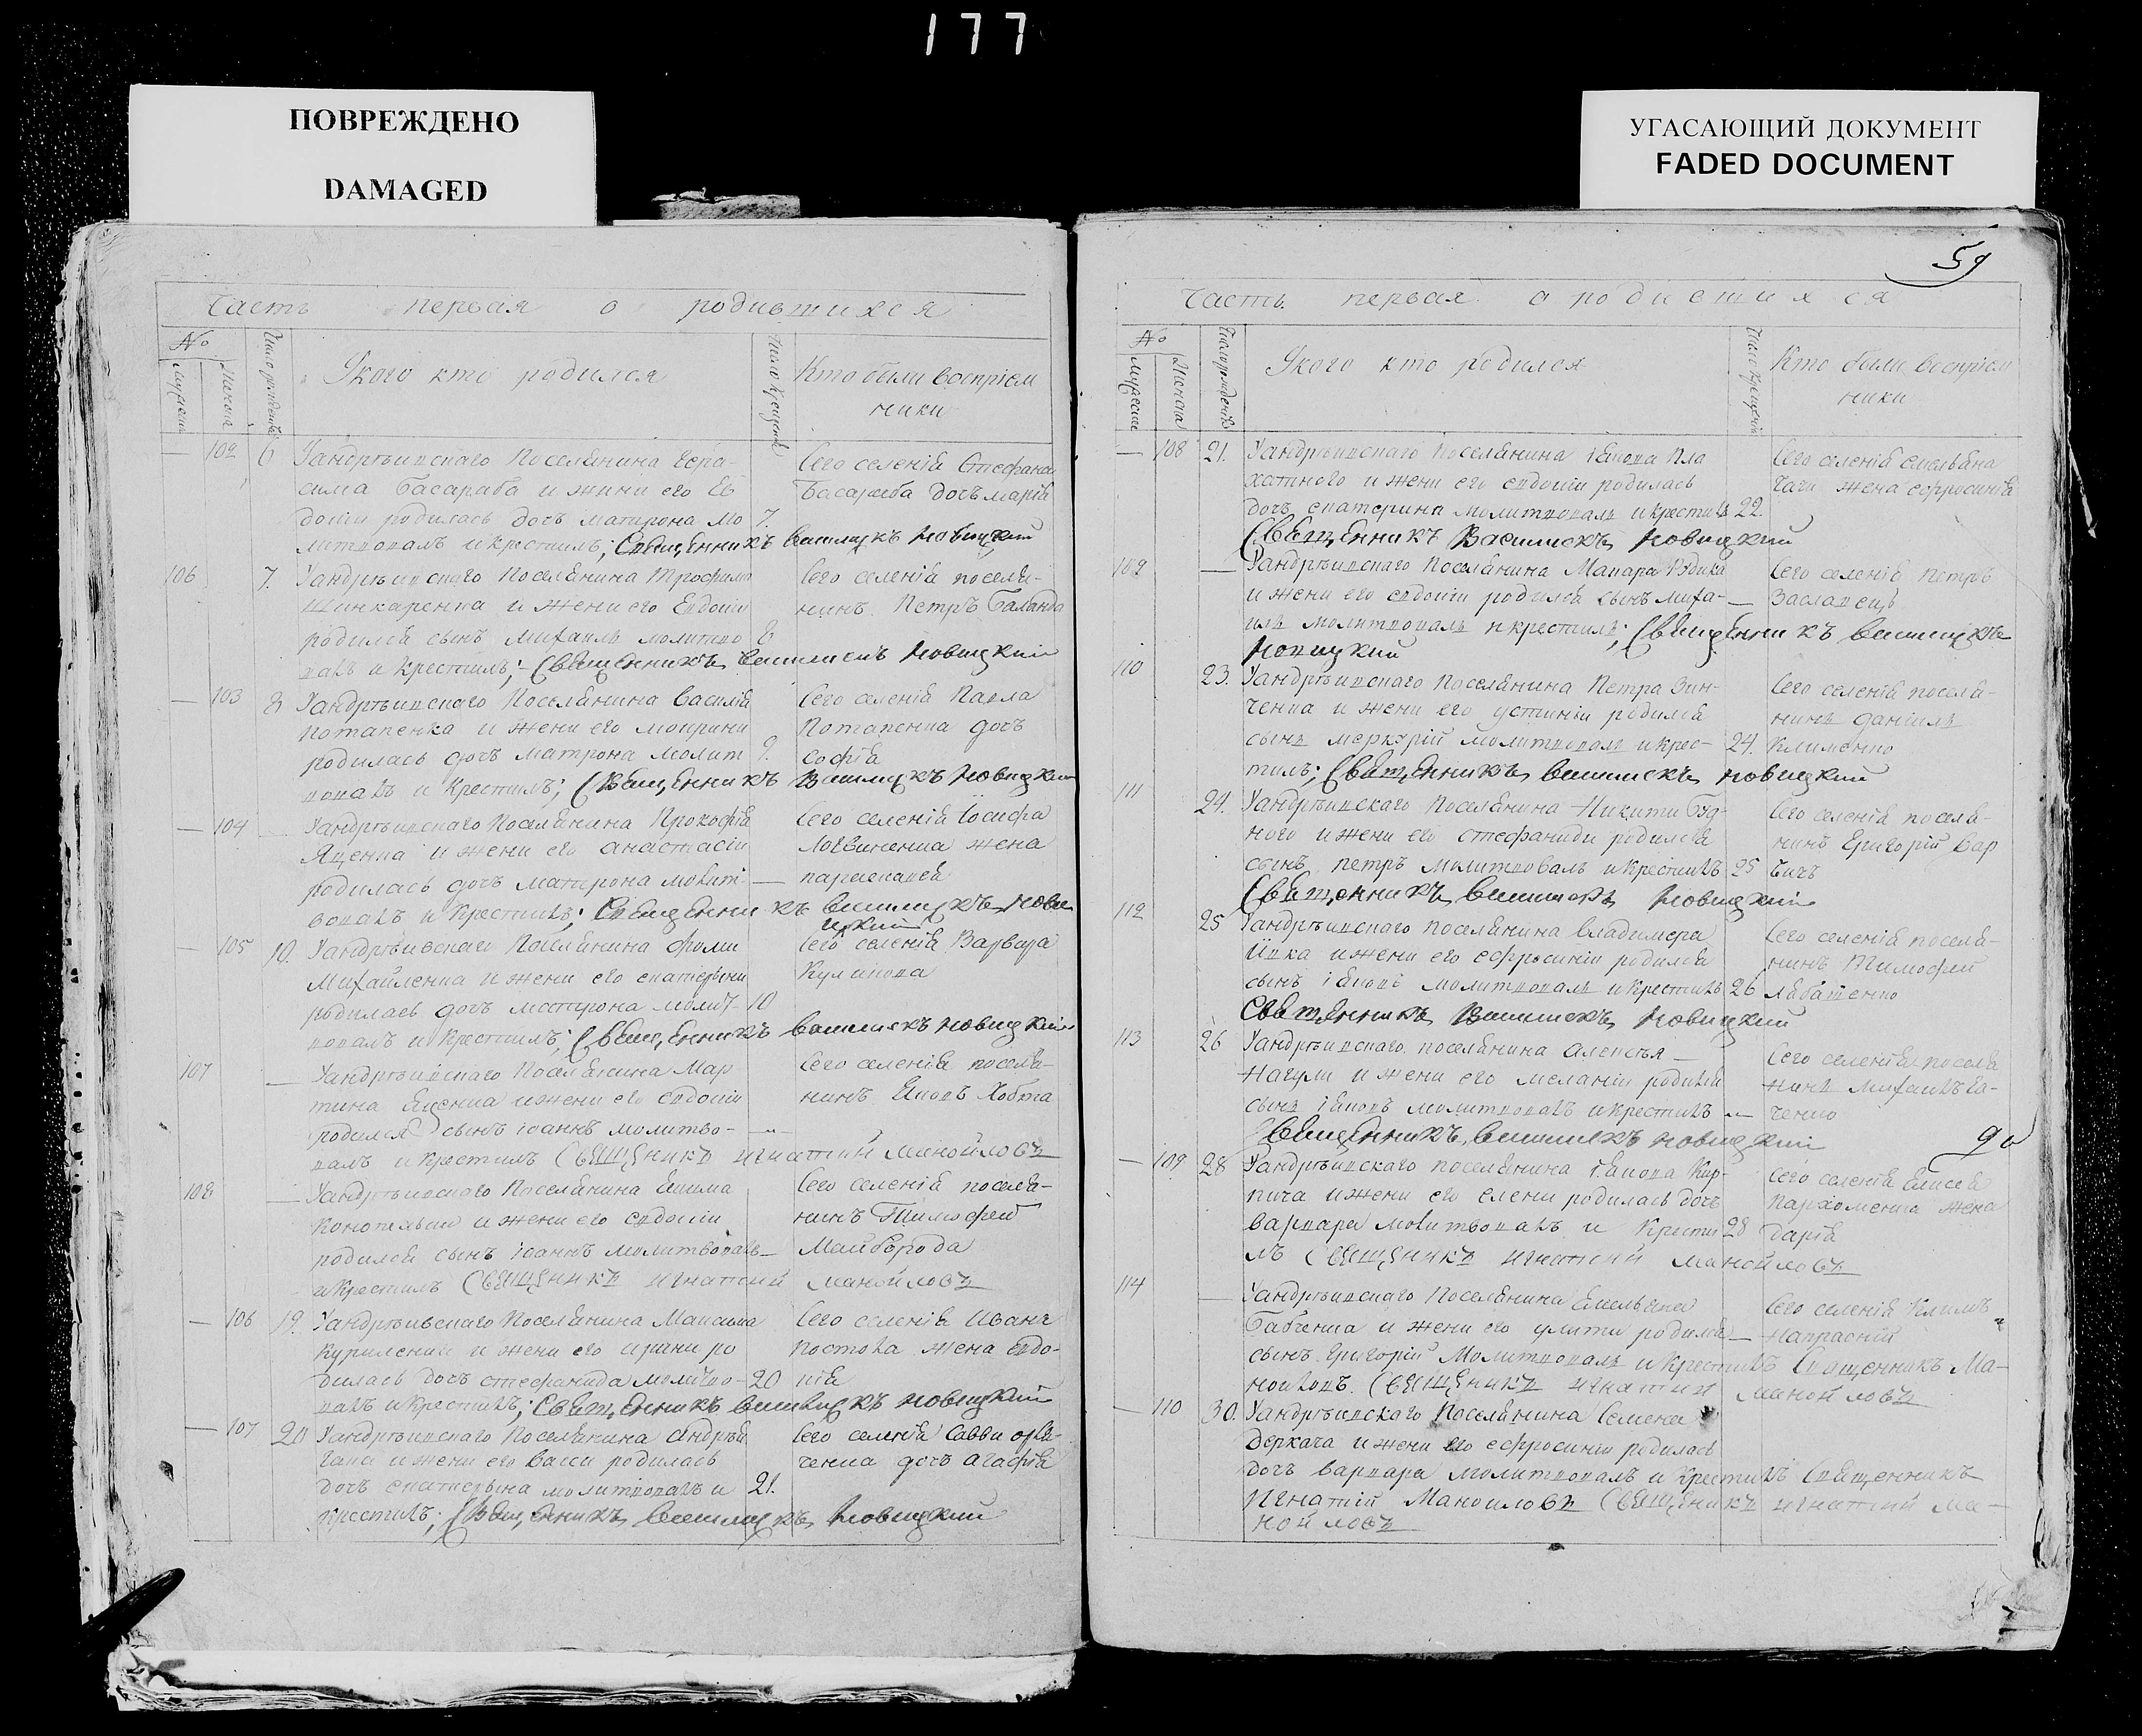 177
ПОВРЕЖДЕНО
DAMAGED
УГАСАЮЩИЙ ДОКУМЕНТ
FADED DOCUMENT
Часть первая о родившихся
№
Мужеска
Женска
Число рожденія
У кого кто родился
Число крещенія
Кто были воспріем
ники
— 102 6 Уандрѣивскаго Поселянина Гера-
сима Басараба и жини его Ев
докіи родилась дочь матрона мо 7.
литвовалъ икрестилъ; Священникъ Новицкий
Сего селенія Стефана
Басараба дочь марія
106 7. Уандрѣивскаго Поселянина Трофима
Шинкаренка и жени его Евдокіи
родился сынъ михаилъ молитво 8
валъ икрестилъ; Священникъ Новицкий
Сего селенія поселя-
нинъ Петръ Баланда
— 103 8 Уандрѣивскаго Поселянина Василія
потапенка и жени его мокрини
родилась дочь матрона молит 9.
вовалъ и крестилъ; Священникъ Новицкий
Сего селенія Павла
Потапенка дочь
софія
— 104 — Уандрѣивскаго Поселянина Прокофія
Яценка и жени его анастасіи
родилась дочь матрона молит- —
вовалъ и крестилъ; Священникъ Нови
цкий
Сего селенія Іосифа
Логвиненка жена
параскавея
— 105 10. Уандрѣивскаго Поселянина фоми
Михайленка и жени его екатерыни
родилась дочь матрона молит- 10
вовалъ и крестилъ; Священникъ новицкий
Сего селенія Варвара
Куликова
107 — Уандрѣивскаго Поселянина Мар
тина Яценка ижени его евдокіи
родился сынъ іоаннъ молитво- —
валъ икрестилъ Священникъ игнатий манойловъ
Сего селенія поселя-
нинъ Яковъ Хобта
108 — Уандрѣивскаго Поселянина Якима
Коноплыи и жени его евдокіи
родился сынъ іоаннъ молитвовалъ —
икрестилъ Священникъ игнатий манойловъ
Сего селенія поселя-
нинъ Тимофей
Майборода
— 106 19. Уандрѣивскаго Поселянина Максима
Куриленка и жени его ирини ро
дилась дочь стефанида молитво- 20
валъ икрестилъ; Священникъ новицкий
Сего селенія Иванъ
постола жена евдо-
кія
— 107 20 Уандрѣивскаго Поселянина Андрѣя
Чачи и жени его Васси родилась
дочь екатерына молитвовалъ и 21.
крестилъ; Священникъ Новицкий
Сего селенія Савви
дочь агафія
59
Часть первая о родившихся
№
Мужеска
Женска
Число рожденія
У кого кто родился
Число крещенія
Кто были воспріем
ники
— 108 21. Уандрѣивскаго Поселянина іякова Пла
хотного и жени его евдокіи родилась
дочь екатерина молитвовалъ икрестилъ 22.
Священникъ Василискъ Новицкий
Сего селенія емельяна
Чачи жена ефросинія
109 — Уандрѣивскаго Поселянина Макара Рудика
и жени его евдокіи родился сынъ миха- —
илъ молитвовалъ икрестилъ; Священникъ
Новицкий
Сего селенія Петръ
Заславецъ
110 23. Уандрѣивскаго Поселянина Петра Зин-
ченка и жени его устиніи родился
сынъ меркурій молитвовалъ икрес- 24.
тилъ; Священникъ новицкий
Сего селенія поселя-
нинъ даніилъ
Клименко
111 24. Уандрѣивскаго Поселянина Никити Буд-
ного и жени его стефаниди родился
сынъ петръ молитвовалъ икрестилъ 25
Священникъ Новицкий
Сего селенія поселя-
нинъ Григорій Вар
вичъ
112 25 Уандрѣивскаго поселянина Владимера
Ивка ижени его ефросиніи родился
сынъ іяковъ молитвовалъ икрестилъ 26
Священникъ Василискъ Новицкий
Сего селенія поселя-
нинъ Тимофей
113 26 Уандрѣивскаго поселянина алексѣя —
Нагули и жени его меланіи родился
сынъ іяковъ молитвовалъ икрестилъ —
Священникъ новицкий
Сего селенія поселя
нинъ
ченко
— 109 28 Уандрѣивскаго поселянина іякова Кир-
пича ижени его елени родилась дочь
варвара молитвовалъ и крести 28
лъ Священникъ игнатий манойловъ
Сего селенія Елисея
пархоменка жена
дарія
114 — Уандрѣивскаго Поселянина Емельяна
Бабченка и жени его улити родился —
сынъ Григорій Молитвовалъ икрестилъ Священникъ Ма-
нойловъ. Священникъ игнатий манойловъ
Сего селенія Климъ
Напрасній
— 110 30. Уандрѣивскаго Поселянина Семена
деркача и жени его ефросиніи родилась
дочь варвара молитвовалъ и крестилъ Священникъ
Игнатій Манойловъ Священникъ игнатий ма-
нойловъ